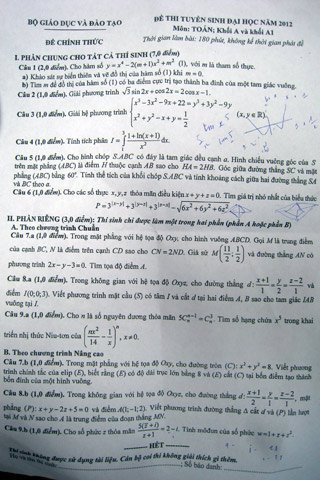 BỘ GIÁO DỤC VÀ ĐÀO TẠO
ĐỀ THI TUYỂN SINH ĐẠI HỌC NĂM 2012
Môn: TOÁN; Khối A và khối A1
ĐỀ CHÍNH THỨC
Thời gian làm bài: 180 phút, không kể thời gian phát đề
I. PHẦN CHUNG CHO TẤT CẢ THÍ SINH (7,0 điểm)
Câu 1 (2,0 điểm). Cho hàm số y = x⁴ − 2(m+1)x² + m² (1), với m là tham số thực.
a) Khảo sát sự biến thiên và vẽ đồ thị của hàm số (1) khi m = 0.
b) Tìm m để đồ thị của hàm số (1) có ba điểm cực trị tạo thành ba đỉnh của một tam giác vuông.
Câu 2 (1,0 điểm). Giải phương trình √3 sin2x + cos2x = 2cosx − 1.
Câu 3 (1,0 điểm). Giải hệ phương trình { x³ − 3x² − 9x + 22 = y³ + 3y² − 9y
x² + y² − x + y = 1/2 (x, y ∈ ℝ).
Câu 4 (1,0 điểm). Tính tích phân I = ∫₁³ (1 + ln(x+1))/x² dx.
Câu 5 (1,0 điểm). Cho hình chóp S.ABC có đáy là tam giác đều cạnh a. Hình chiếu vuông góc của S
trên mặt phẳng (ABC) là điểm H thuộc cạnh AB sao cho HA = 2HB. Góc giữa đường thẳng SC và mặt
phẳng (ABC) bằng 60°. Tính thể tích của khối chóp S.ABC và tính khoảng cách giữa hai đường thẳng SA
và BC theo a.
Câu 6 (1,0 điểm). Cho các số thực x, y, z thỏa mãn điều kiện x + y + z = 0. Tìm giá trị nhỏ nhất của biểu thức
P = 3^|x−y| + 3^|y−z| + 3^|z−x| − √(6x² + 6y² + 6z²).
II. PHẦN RIÊNG (3,0 điểm): Thí sinh chỉ được làm một trong hai phần (phần A hoặc phần B)
A. Theo chương trình Chuẩn
Câu 7.a (1,0 điểm). Trong mặt phẳng với hệ tọa độ Oxy, cho hình vuông ABCD. Gọi M là trung điểm
của cạnh BC, N là điểm trên cạnh CD sao cho CN = 2ND. Giả sử M(11/2; 1/2) và đường thẳng AN có
phương trình 2x − y − 3 = 0. Tìm tọa độ điểm A.
Câu 8.a (1,0 điểm). Trong không gian với hệ tọa độ Oxyz, cho đường thẳng d: (x+1)/1 = y/2 = (z−2)/1 và
điểm I(0;0;3). Viết phương trình mặt cầu (S) có tâm I và cắt d tại hai điểm A, B sao cho tam giác IAB
vuông tại I.
Câu 9.a (1,0 điểm). Cho n là số nguyên dương thỏa mãn 5Cₙⁿ⁻¹ = Cₙ³. Tìm số hạng chứa x⁵ trong khai
triển nhị thức Niu-tơn của (nx²/14 − 1/x)ⁿ, x ≠ 0.
B. Theo chương trình Nâng cao
Câu 7.b (1,0 điểm). Trong mặt phẳng với hệ tọa độ Oxy, cho đường tròn (C): x² + y² = 8. Viết phương
trình chính tắc của elip (E), biết rằng (E) có độ dài trục lớn bằng 8 và (E) cắt (C) tại bốn điểm tạo thành
bốn đỉnh của một hình vuông.
Câu 8.b (1,0 điểm). Trong không gian với hệ tọa độ Oxyz, cho đường thẳng d: (x+1)/2 = y/1 = (z−2)/1, mặt
phẳng (P): x + y − 2z + 5 = 0 và điểm A(1;−1;2). Viết phương trình đường thẳng Δ cắt d và (P) lần lượt
tại M và N sao cho A là trung điểm của đoạn thẳng MN.
Câu 9.b (1,0 điểm). Cho số phức z thỏa mãn 5(z̄+i)/(z+1) = 2 − i. Tính môđun của số phức w = 1 + z + z².
HẾT
Thí sinh không được sử dụng tài liệu. Cán bộ coi thi không giải thích gì thêm.
Họ và tên thí sinh: ; Số báo danh: